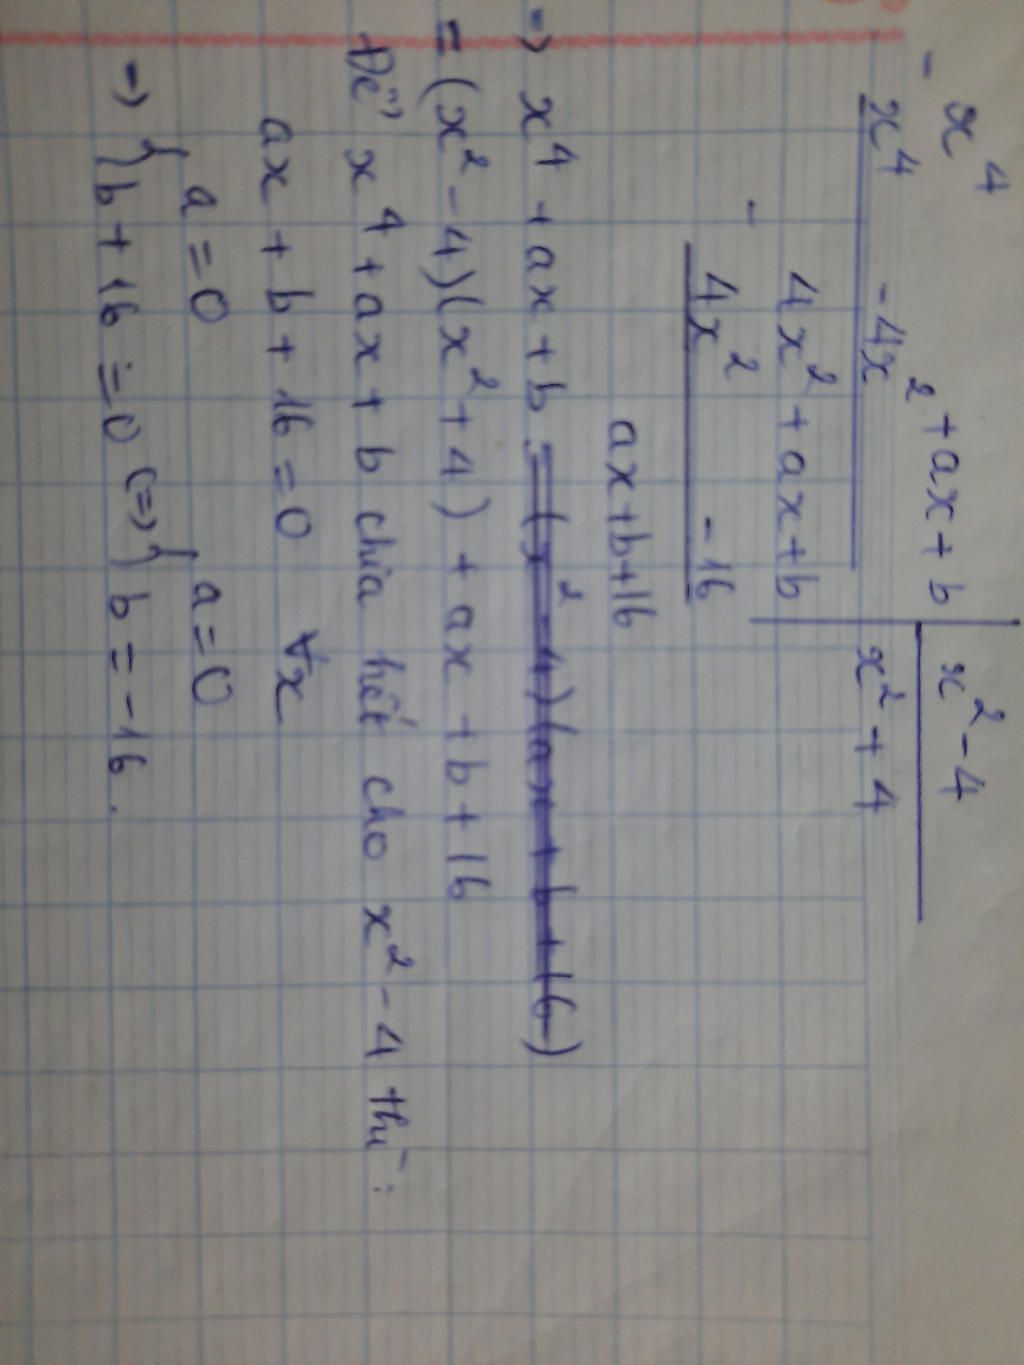 - x⁴ + ax + b | x² - 4
x⁴ - 4x² | x² + 4
- 4x² + ax + b
4x² - 16
ax + b + 16
=> x⁴ + ax + b = (x² - 4)(ax + b + 16)
= (x² - 4)(x² + 4) + ax + b + 16
Để x⁴ + ax + b chia hết cho x² - 4 thì :
ax + b + 16 = 0 ∀x
=> { a = 0 b + 16 = 0 (=> { a = 0 b = -16 .